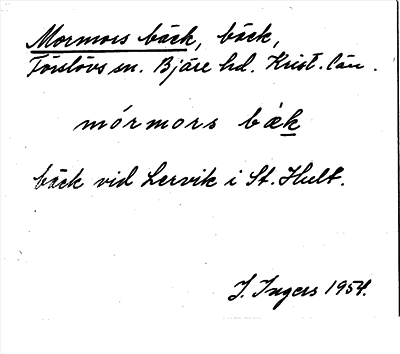 Mormors bäck, bäck,
Förslövs sn. Bjäre hd. Krist. län.
mórmors bæk
bäck vid Lervik i St. Hult.
I. Ingers 1954.